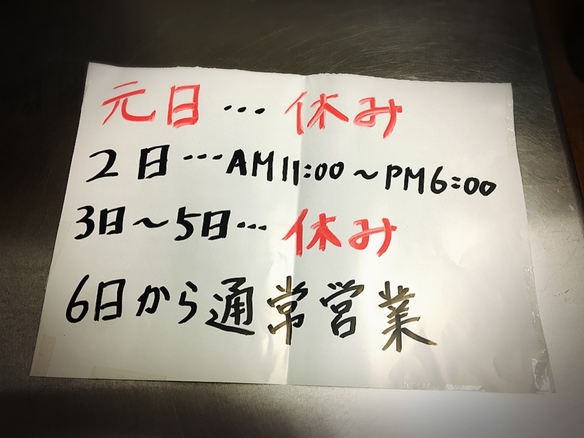 元日…休み
2日…AM11:00～PM6:00
3日～5日…休み
6日から通常営業